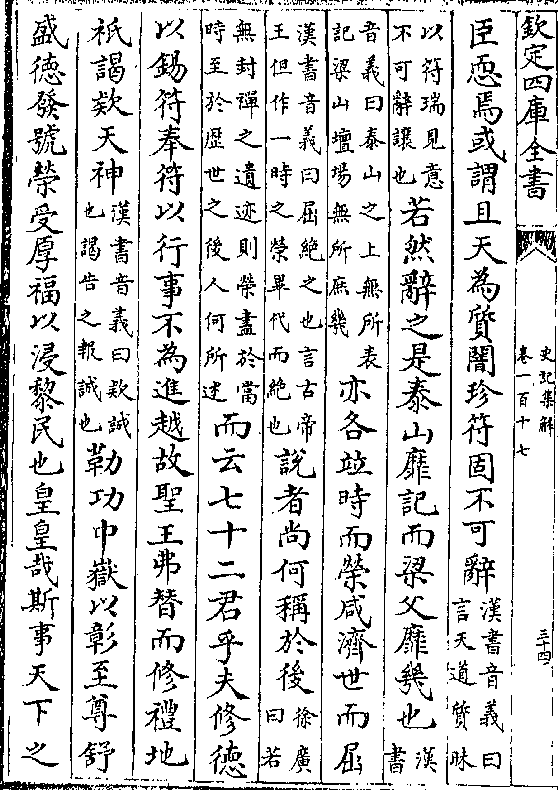 欽定四庫全書
史記集解
卷一百十七
三十四
臣恧焉或謂且天為質闇珍符固不可辭
漢書音義曰
言天道質昧
以符瑞見意
不可辭讓也
若然辭之是泰山靡記而梁父靡幾也
漢
書
音義曰泰山之上無所表
記梁山壇場無所庶幾
亦各竝時而榮咸濟世而屈
漢書音義曰屈絶之也言古帝
王但作一時之榮畢代而絶也
說者尚何稱於後
徐廣
曰若
無封禪之遺迹則榮盡於當
時至於歴世之後人何所述
而云七十二君乎夫修德
以錫符奉符以行事不為進越故聖王弗替而修禮地
祇謁欵天神
漢書音義曰欵誠
也謁告之報誠也
勒功中嶽以彰至尊舒
盛德發號榮受厚福以浸黎民也皇皇哉斯事天下之